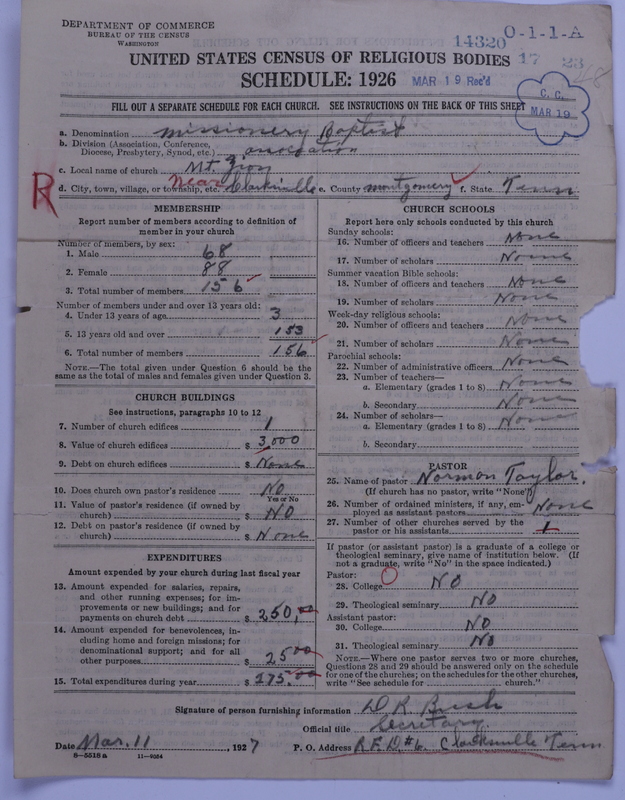 DEPARTMENT OF COMMERCE
BUREAU OF THE CENSUS
WASHINGTON
14320 O-1-1-A
17 23
UNITED STATES CENSUS OF RELIGIOUS BODIES
SCHEDULE: 1926 MAR 19 Rec'd
C. C.
MAR 19
FILL OUT A SEPARATE SCHEDULE FOR EACH CHURCH. SEE INSTRUCTIONS ON THE BACK OF THIS SHEET
a. Denomination Missionery Baptist
b. Division (Association, Conference,
Diocese, Presbytery, Synod, etc.) association
c. Local name of church Mt. Zion
R
d. City, town, village, or township, etc. Near Clarksville e. County montgomery f. State Tenn
MEMBERSHIP
Report number of members according to definition of
member in your church
Number of members, by sex:
1. Male 68
2. Female 88
3. Total number of members 156
Number of members under and over 13 years old:
4. Under 13 years of age 3
5. 13 years old and over 153
6. Total number of members 156
NOTE.—The total given under Question 6 should be
the same as the total of males and females given under Question 3.
CHURCH BUILDINGS
See instructions, paragraphs 10 to 12
7. Number of church edifices 1
8. Value of church edifices $ 3,000
9. Debt on church edifices $ None
10. Does church own pastor's residence NO
Yes or No
11. Value of pastor's residence (if owned by
church) $ NO
12. Debt on pastor's residence (if owned by
church) $ None
EXPENDITURES
Amount expended by your church during last fiscal year
13. Amount expended for salaries, repairs,
and other running expenses; for im-
provements or new buildings; and for
payments on church debt $ 250.00
14. Amount expended for benevolences, in-
cluding home and foreign missions; for
denominational support; and for all
other purposes $ 25 00
15. Total expenditures during year $ 275.00
CHURCH SCHOOLS
Report here only schools conducted by this church
Sunday schools:
16. Number of officers and teachers None
17. Number of scholars None
Summer vacation Bible schools:
18. Number of officers and teachers None
19. Number of scholars None
Week-day religious schools:
20. Number of officers and teachers None
21. Number of scholars None
Parochial schools:
22. Number of administrative officers None
23. Number of teachers—
a. Elementary (grades 1 to 8) None
b. Secondary None
24. Number of scholars—
a. Elementary (grades 1 to 8) None
b. Secondary
PASTOR
25. Name of pastor Norman Taylor.
(If church has no pastor, write "None")
26. Number of ordained ministers, if any, em-
ployed as assistant pastors None
27. Number of other churches served by the
pastor or his assistants 1
If pastor (or assistant pastor) is a graduate of a college or
theological seminary, give name of institution below. (If
not a graduate, write "No" in the space indicated.)
Pastor:
28. College NO
29. Theological seminary NO
Assistant pastor:
30. College NO
31. Theological seminary NO
NOTE.—Where one pastor serves two or more churches,
Questions 28 and 29 should be answered only on the schedule
for one of the churches; on the schedules for the other churches,
write "See schedule for church."
Signature of person furnishing information D R Bush
Official title Secretary
Date Mar. 11, 1927 P. O. Address R.F.D.#6. Clarksville Tenn
8—5518 a 11—9064